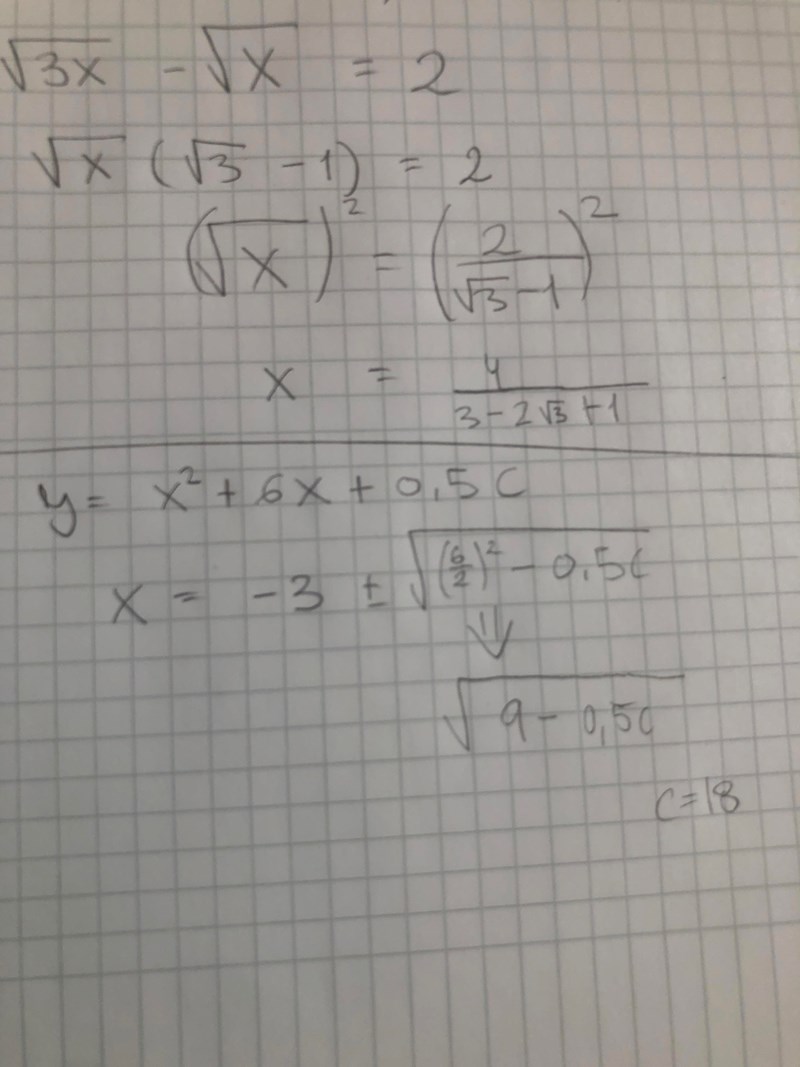 √3x - √x = 2
√x (√3 - 1) = 2
(√x)² = (2/(√3-1))²
x = 4/(3-2√3+1)
y = x² + 6x + 0,5C
x = -3 ± √((6/2)² - 0,5C)
⇓
√(9 - 0,5C)
C=18